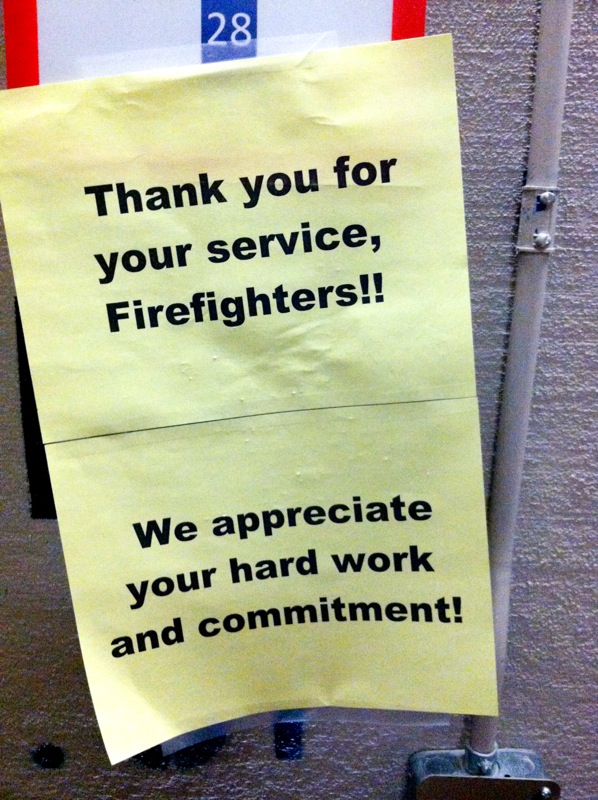 28
Thank you for
your service,
Firefighters!!
We appreciate
your hard work
and commitment!